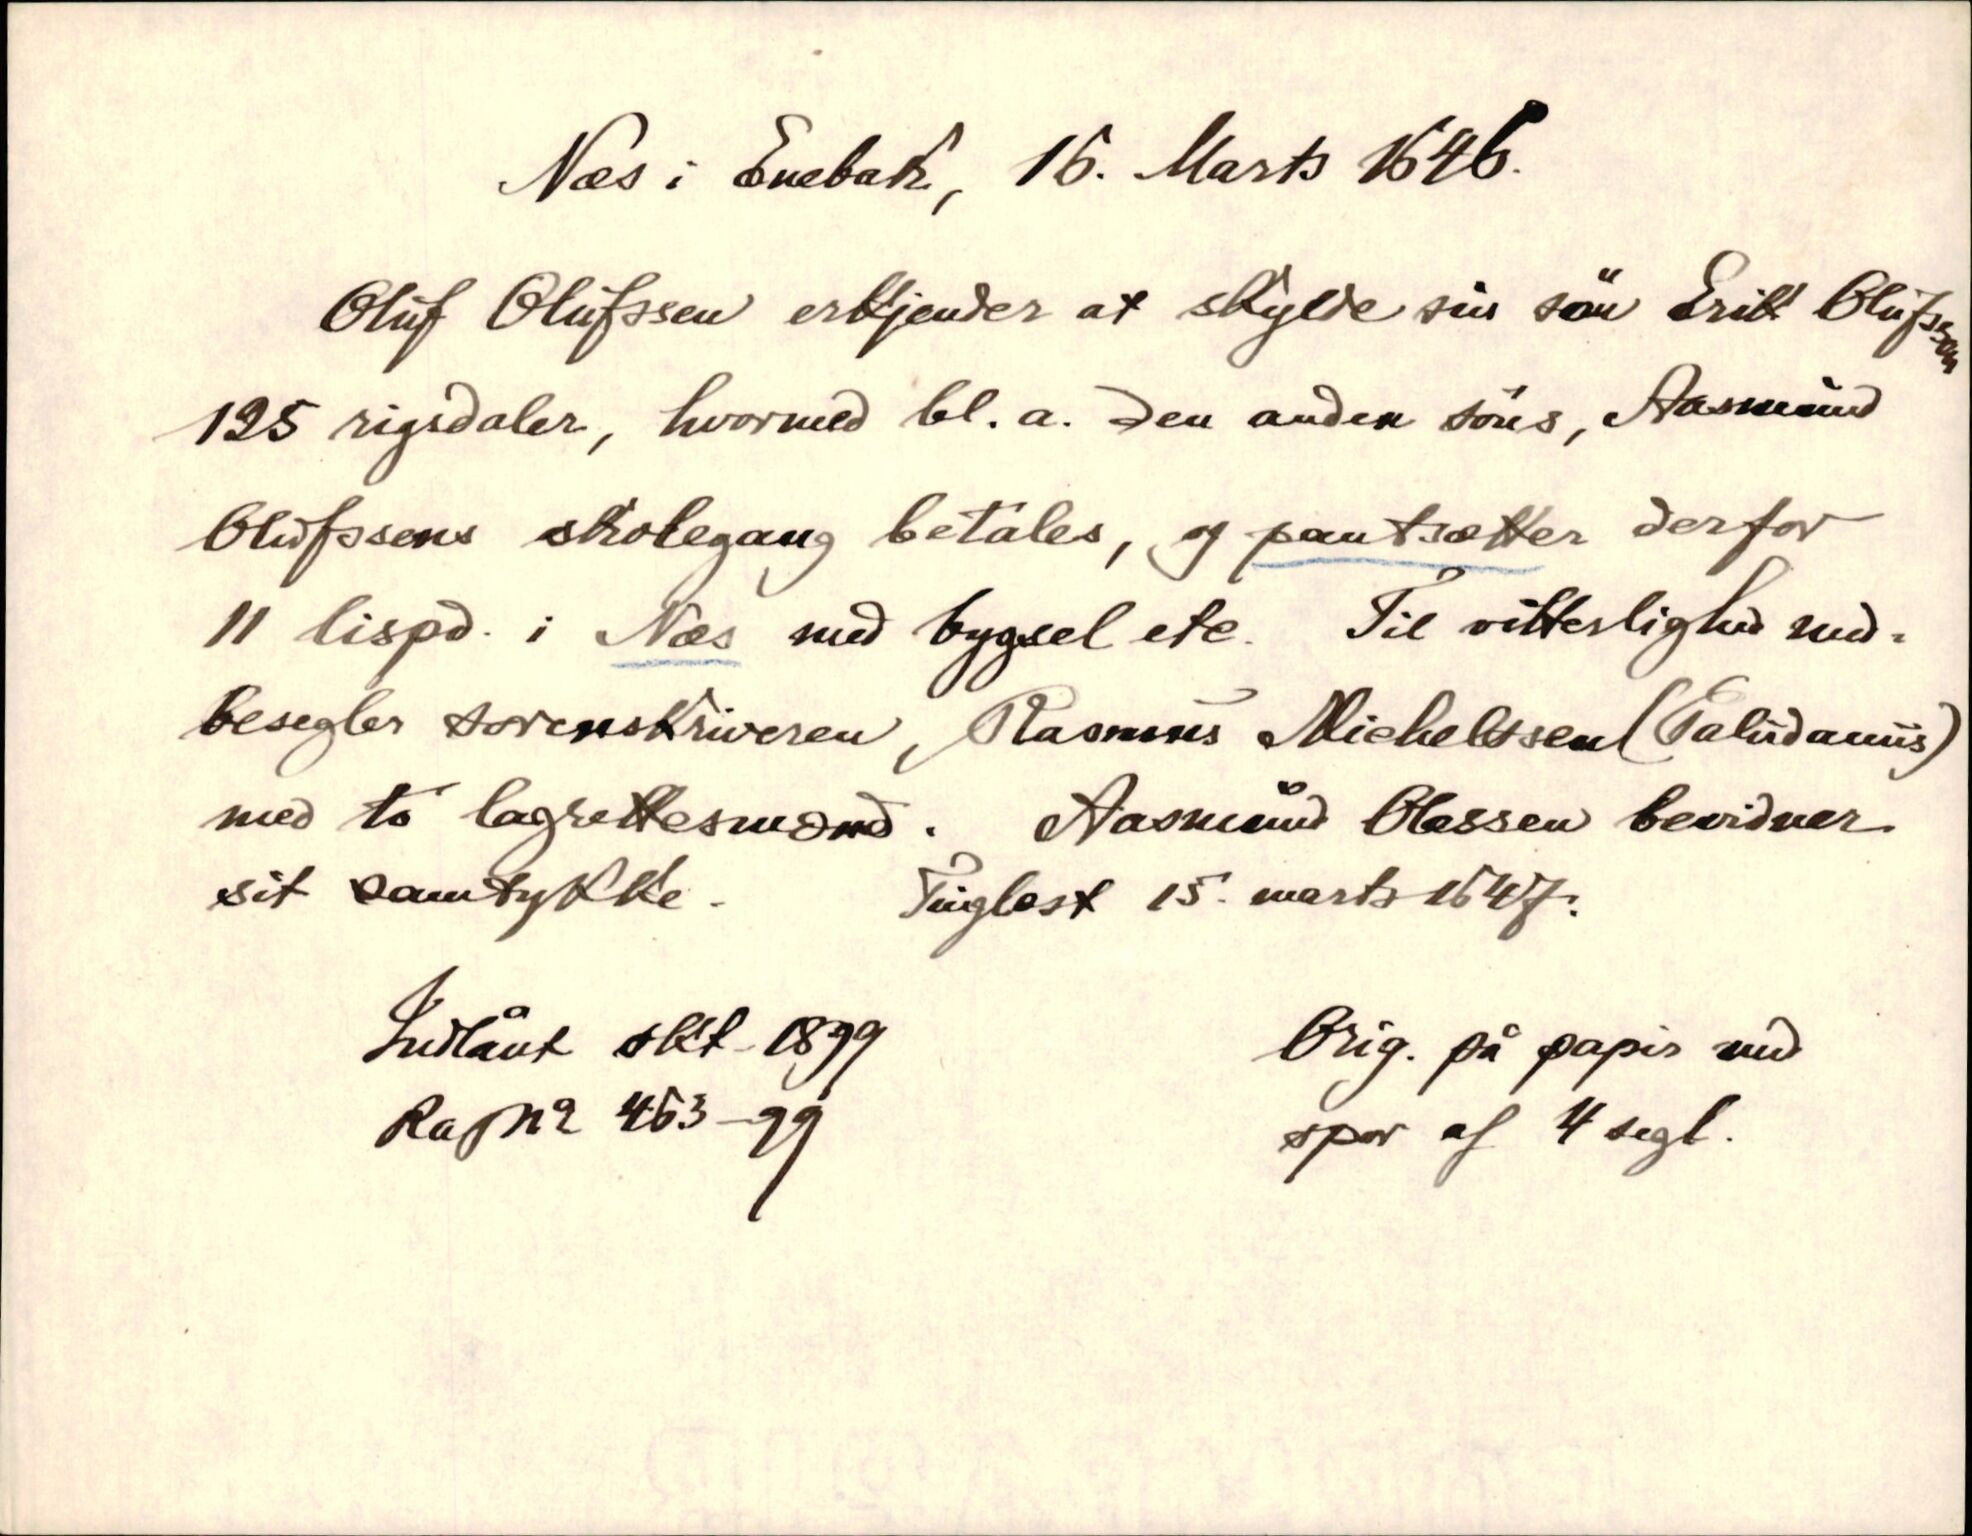 Næs i Enebak, 16. Marts 1646.
Oluf Olufssen erkjender at skylde sin sön Erik Olufssen
125 rigsdaler, hvormed bl. a. den anden söns, Aasmund
Olufssens skolegang betales, og pantsætter derfor
11 lispd. i Næs med bygsel etc. Til vitterlighed med-
besegler sorenskriveren, Rasmus Micheltssen (Paludanus)
med to lagrettesmænd. Aasmund Olessen bevidner
sit samtykke. Tinglest 15. marts 1647.
Indlånt skt. 1899
Ra J№ 463-99
Orig. på papir med
spor af 4 segl.